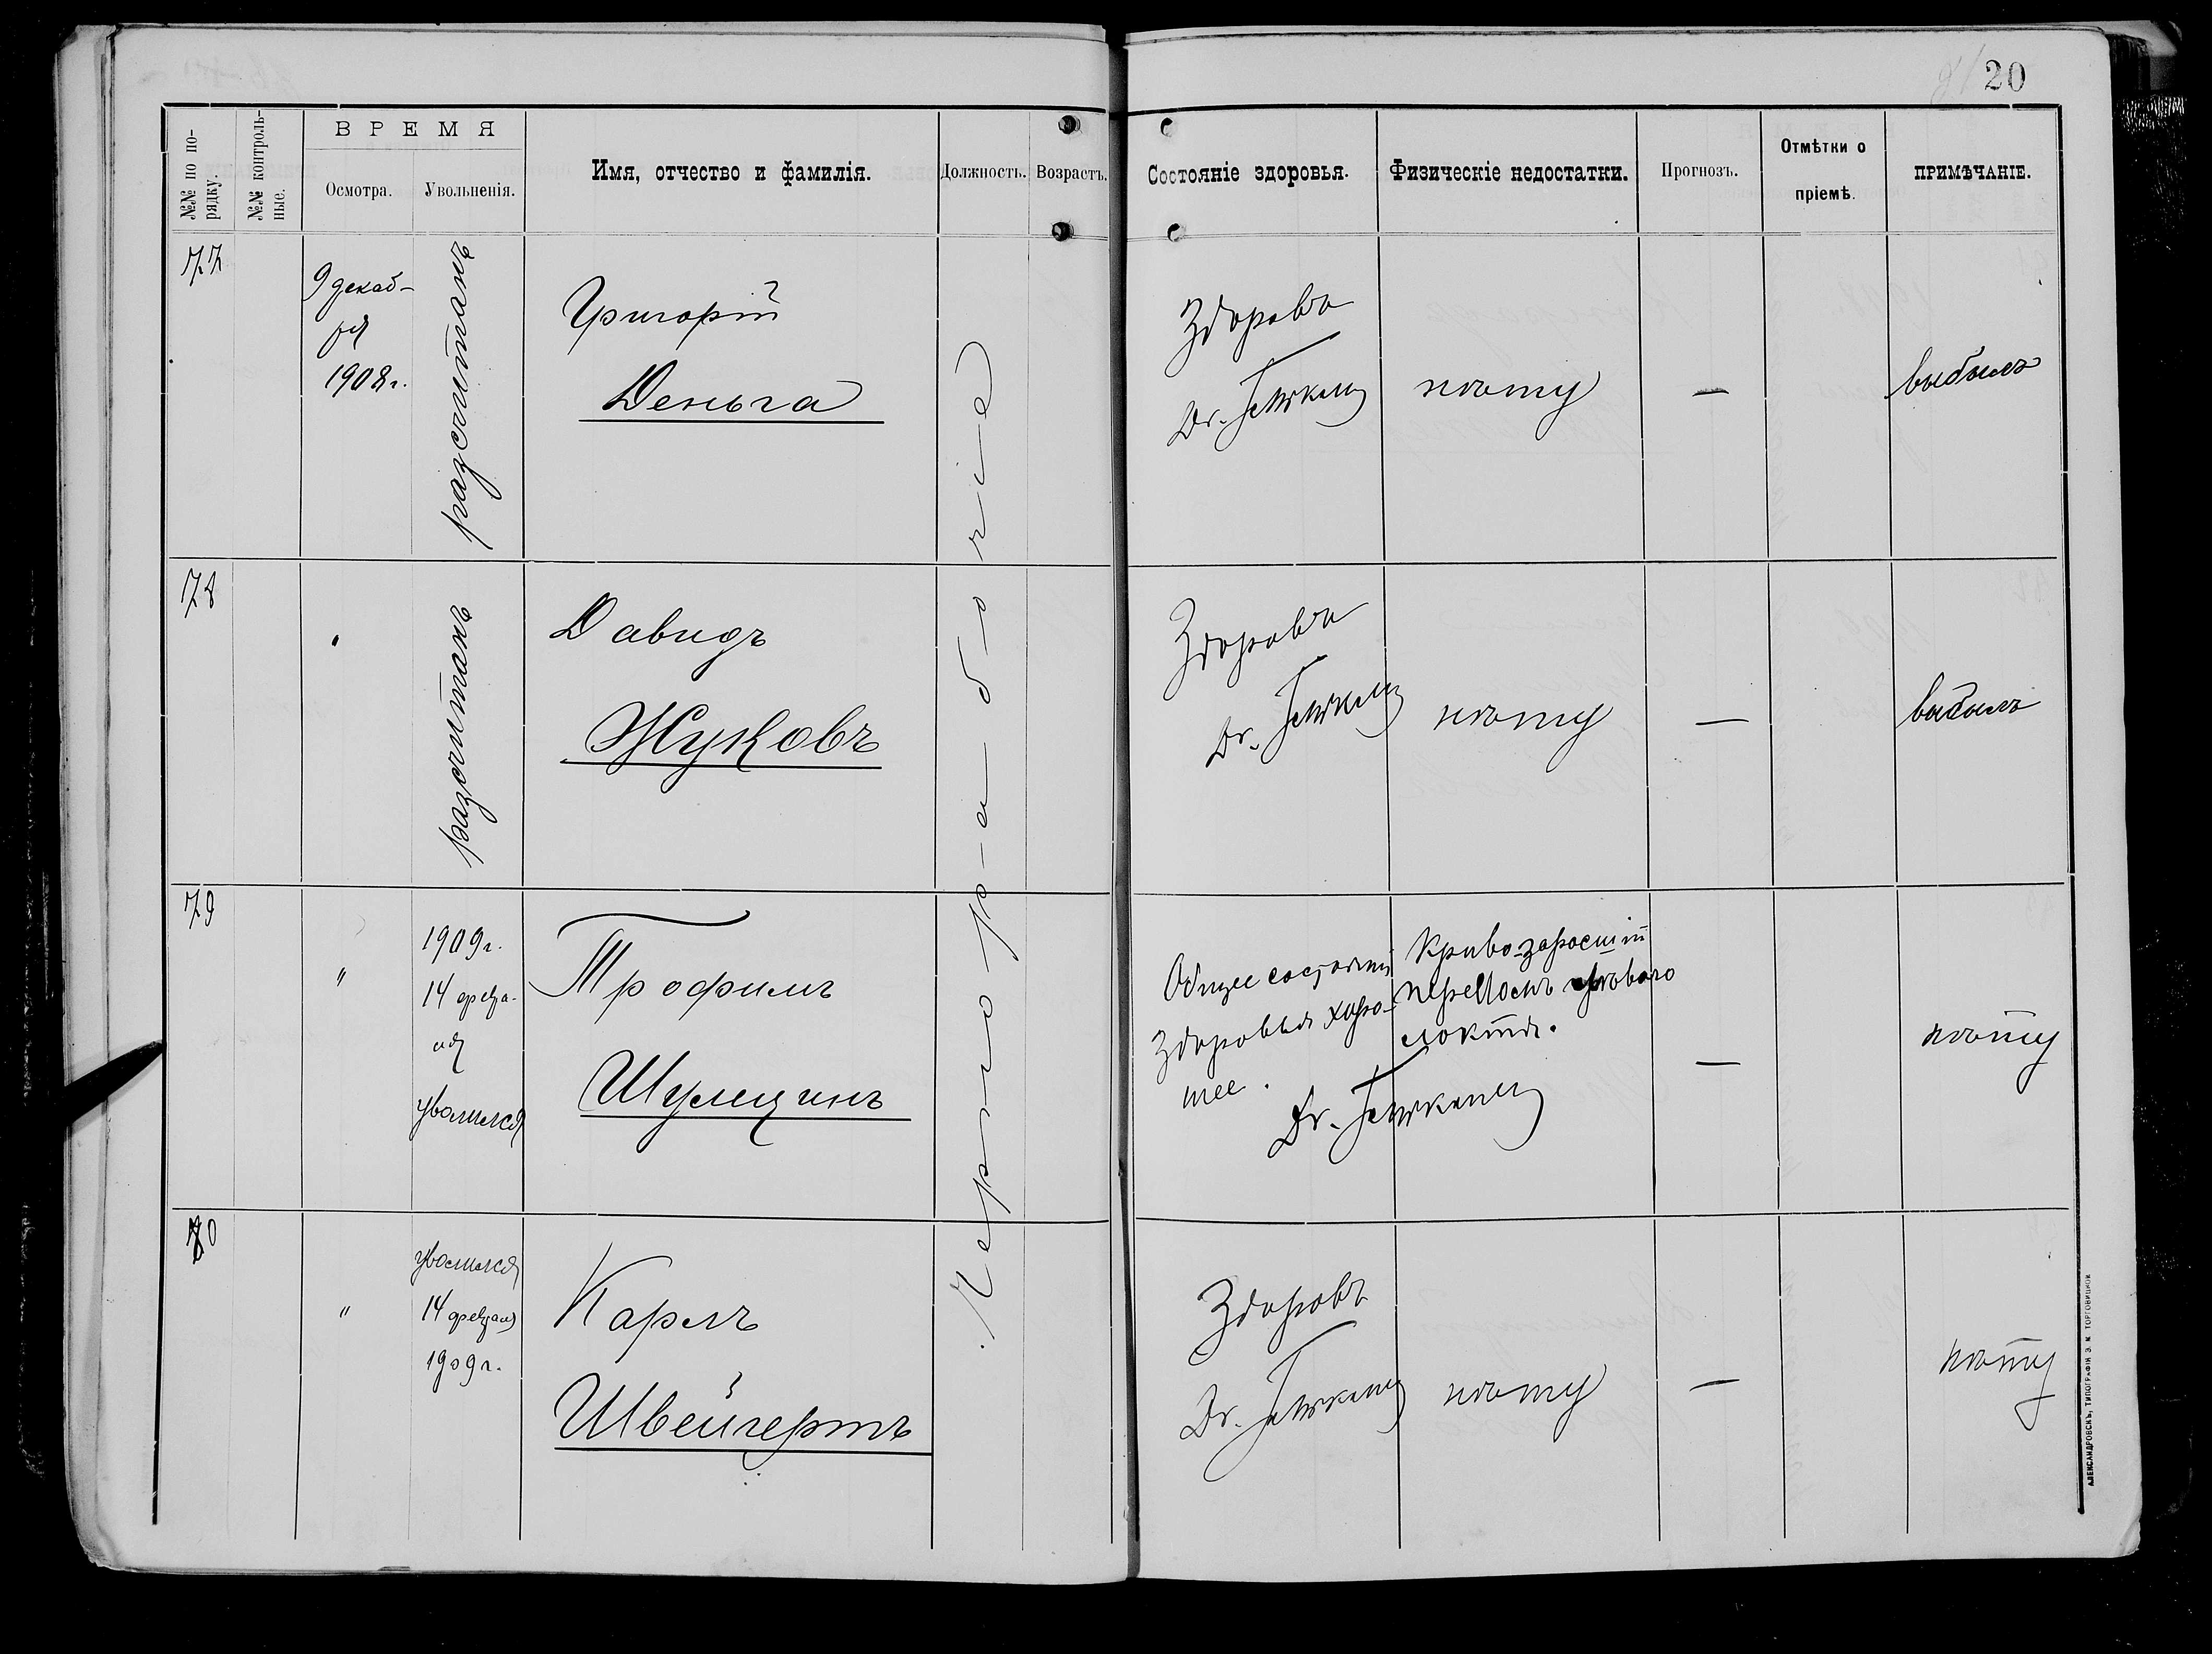 20
№№ по по-
рядку.
№№ контроль-
ные.
ВРЕМЯ
Осмотра.
Увольненія.
Имя, отчество и фамилія.
Должность.
Возрастъ.
Состояніе здоровья.
Физическіе недостатки.
Прогнозъ.
Отмѣтки о
пріемѣ.
ПРИМѢЧАНІЕ.
77
9 декаб-
ря
1908 г.
разсчитанъ
Григорій
Деньга
Чернорабочіе
Здоровъ
Dr.
нѣту
—
выбылъ
78
"
разсчитанъ
Давидъ
Жуковъ
Здоровъ
Dr.
нѣту
—
выбылъ
79
"
1909 г.
14 февра-
ля
уволился
Трофимъ
Шулицинъ
Общее состояніе
здоровья хоро-
шее.
Криво-заросшій
переломъ праваго
локтя.
Dr.
—
нѣту
80
"
уволился
14 февраля
1909 г.
Карлъ
Швейгертъ
Здоровъ
Dr.
нѣту
—
нѣту
АЛЕКСАНДРОВСКЪ, ТИПОГРАФІЯ Э. М. ТОРГОВИЦКОЙ